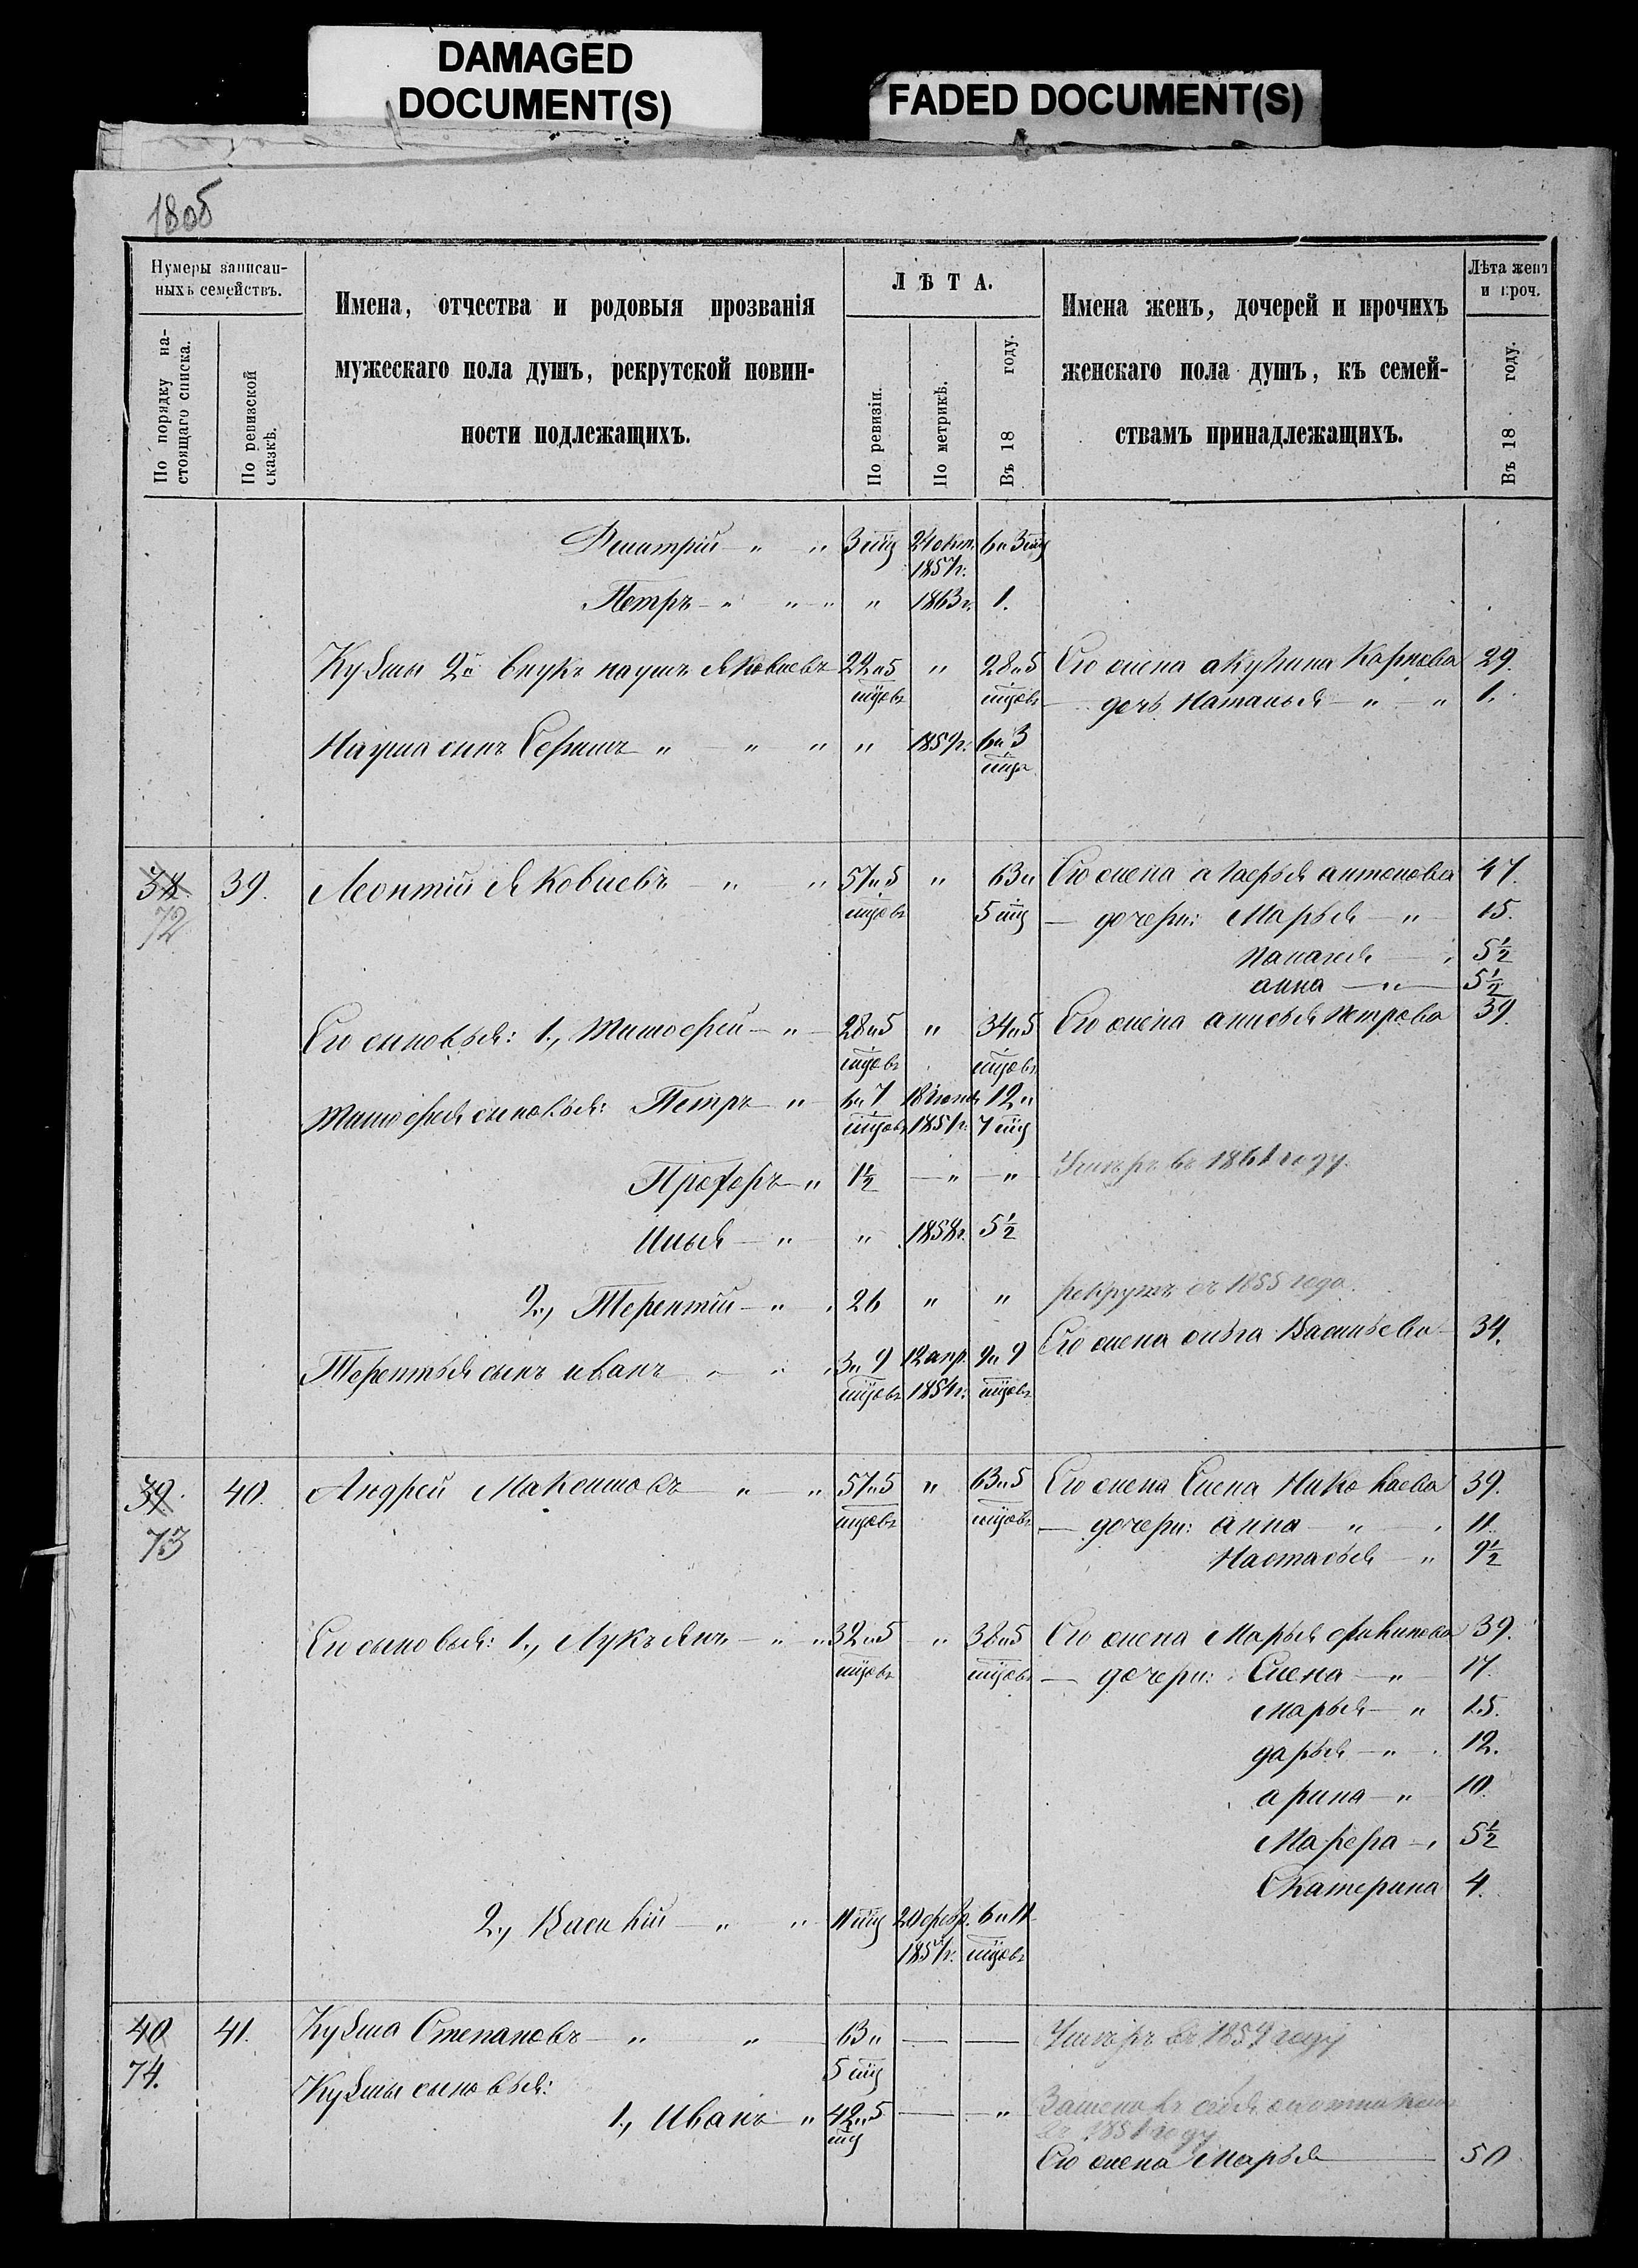 DAMAGED
DOCUMENT(S)
FADED DOCUMENT(S)
1805
Нумеры записан-
ныхъ семействъ.
По порядку на-
стоящаго списка.
По ревизской
сказкѣ.
Имена, отчества и родовыя прозванія
мужескаго пола душъ, рекрутской повин-
ности подлежащихъ.
ЛѢТА.
По ревизіи.
По метрикѣ.
Въ 18 году.
Имена женъ, дочерей и прочихъ
женскаго пола душъ, къ семей-
ствамъ принадлежащихъ.
Лѣта женъ
и проч.
Въ 18 году.
Дмитрій — " " 3 мц 24 окт. 6 и 3 мц
1857 г.
Петръ — " " " " 1863 г. 1.
Кузмы 2й внукъ наумъ Яковлевъ 22 и 5 " 28 и 5 Его жена акулина Карпова 29.
мцовъ мцовъ — дочь Наталья — " — " 1.
Наума сынъ Сергѣй " — " " " 1857 г. 6 и 3
мца
38 39. Леонтій Яковлевъ — " — " 57 и 5 " 63 и Его жена Марья антонова 47.
72 мцовъ 5 мц — дочери: Марья — " — 15.
Палагея — " 5½
анна — " — 5½
Его сыновья: 1., Тимофей — " — 28 и 5 " 34 и 5 Его жена анисья Петрова 39.
мцовъ мцовъ
Тимофея сыновья: Петръ — " — 6 и 7 18 іюня 12 и
мцовъ 1851 г. 7 мц
Прохоръ — " 1½ — " — " Умеръ въ 1861 году.
Илья — " — " 1858 г. 5½
2., Терентій — " 26 " " рекрутъ съ 1855 года.
Его жена ольга Васильева 34.
Терентья сынъ иванъ " " 3 и 9 12 апр. 9 и 9
мцовъ 1854 г. мцовъ
39. 40. Андрей Максимовъ " — " 57 и 5 " 63 и 5 Его жена Елена Николаева 39.
73 мцовъ мцовъ — дочери: анна — " — " 11.
Настасья — " 9½
Его сыновья: 1., Лукьянъ — " " 32 и 5 " 38 и 5 Его жена Марья филипова 39.
мцовъ мцовъ — дочери: Елена — " 17.
Марья — " 15.
дарья — " 12.
арина — " 10.
Марфа — " 5½
Екатерина 4.
2., Василій — " " 11 мц 20 февр. 6 и 11
1857 г. мцовъ
40 41. Кузма Степановъ — " " 63 и — — Умеръ въ 1859 году
74. 5 мц
Кузмы сыновья:
1., Иванъ — " 42 и 5 — — "
мц въ 1851 году
Его жена Марья — 50